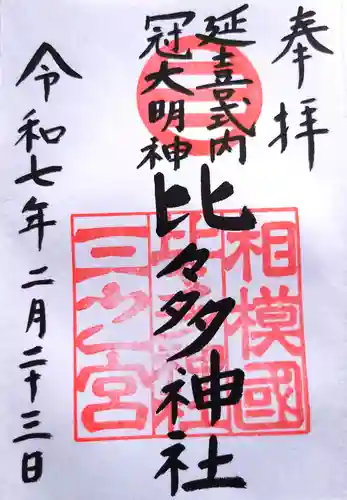 奉拝
延喜式内
冠大明神
比々多神社
令和七年二月二十三日
相模國
比々多神社
三之宮